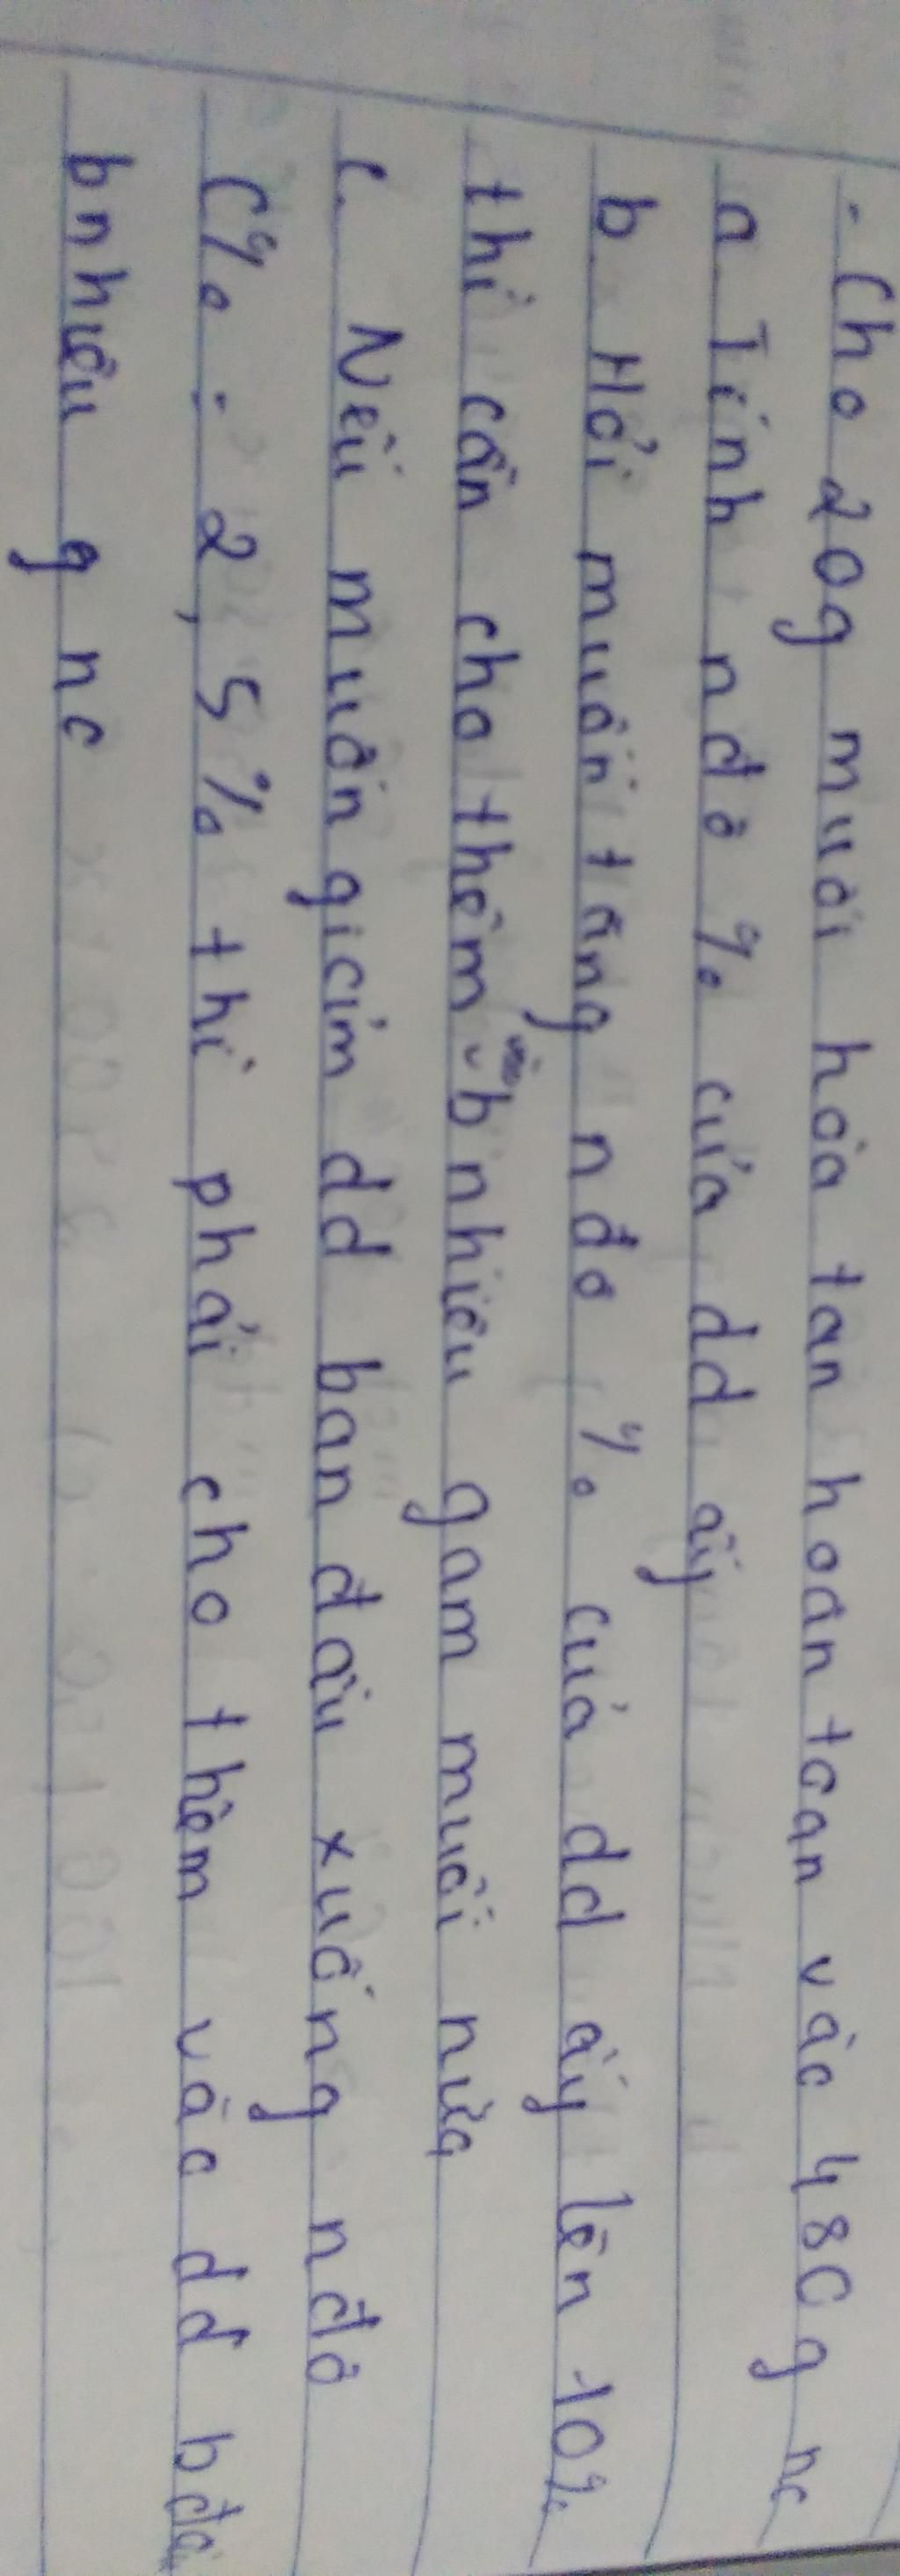 - Cho 20g muối hòa tan hoàn toàn vào 480g nc
a Tính nđộ % của dd ấy
b. Hỏi muốn tăng nđộ % của dd ấy lên 10%
thì cần cho thêm vào b nhiêu gam muối nữa
c. Nếu muốn giảm dd ban đầu xuống nđộ
C% = 2,5% thì phải cho thêm vào dd bđầu
bnhiêu g nc